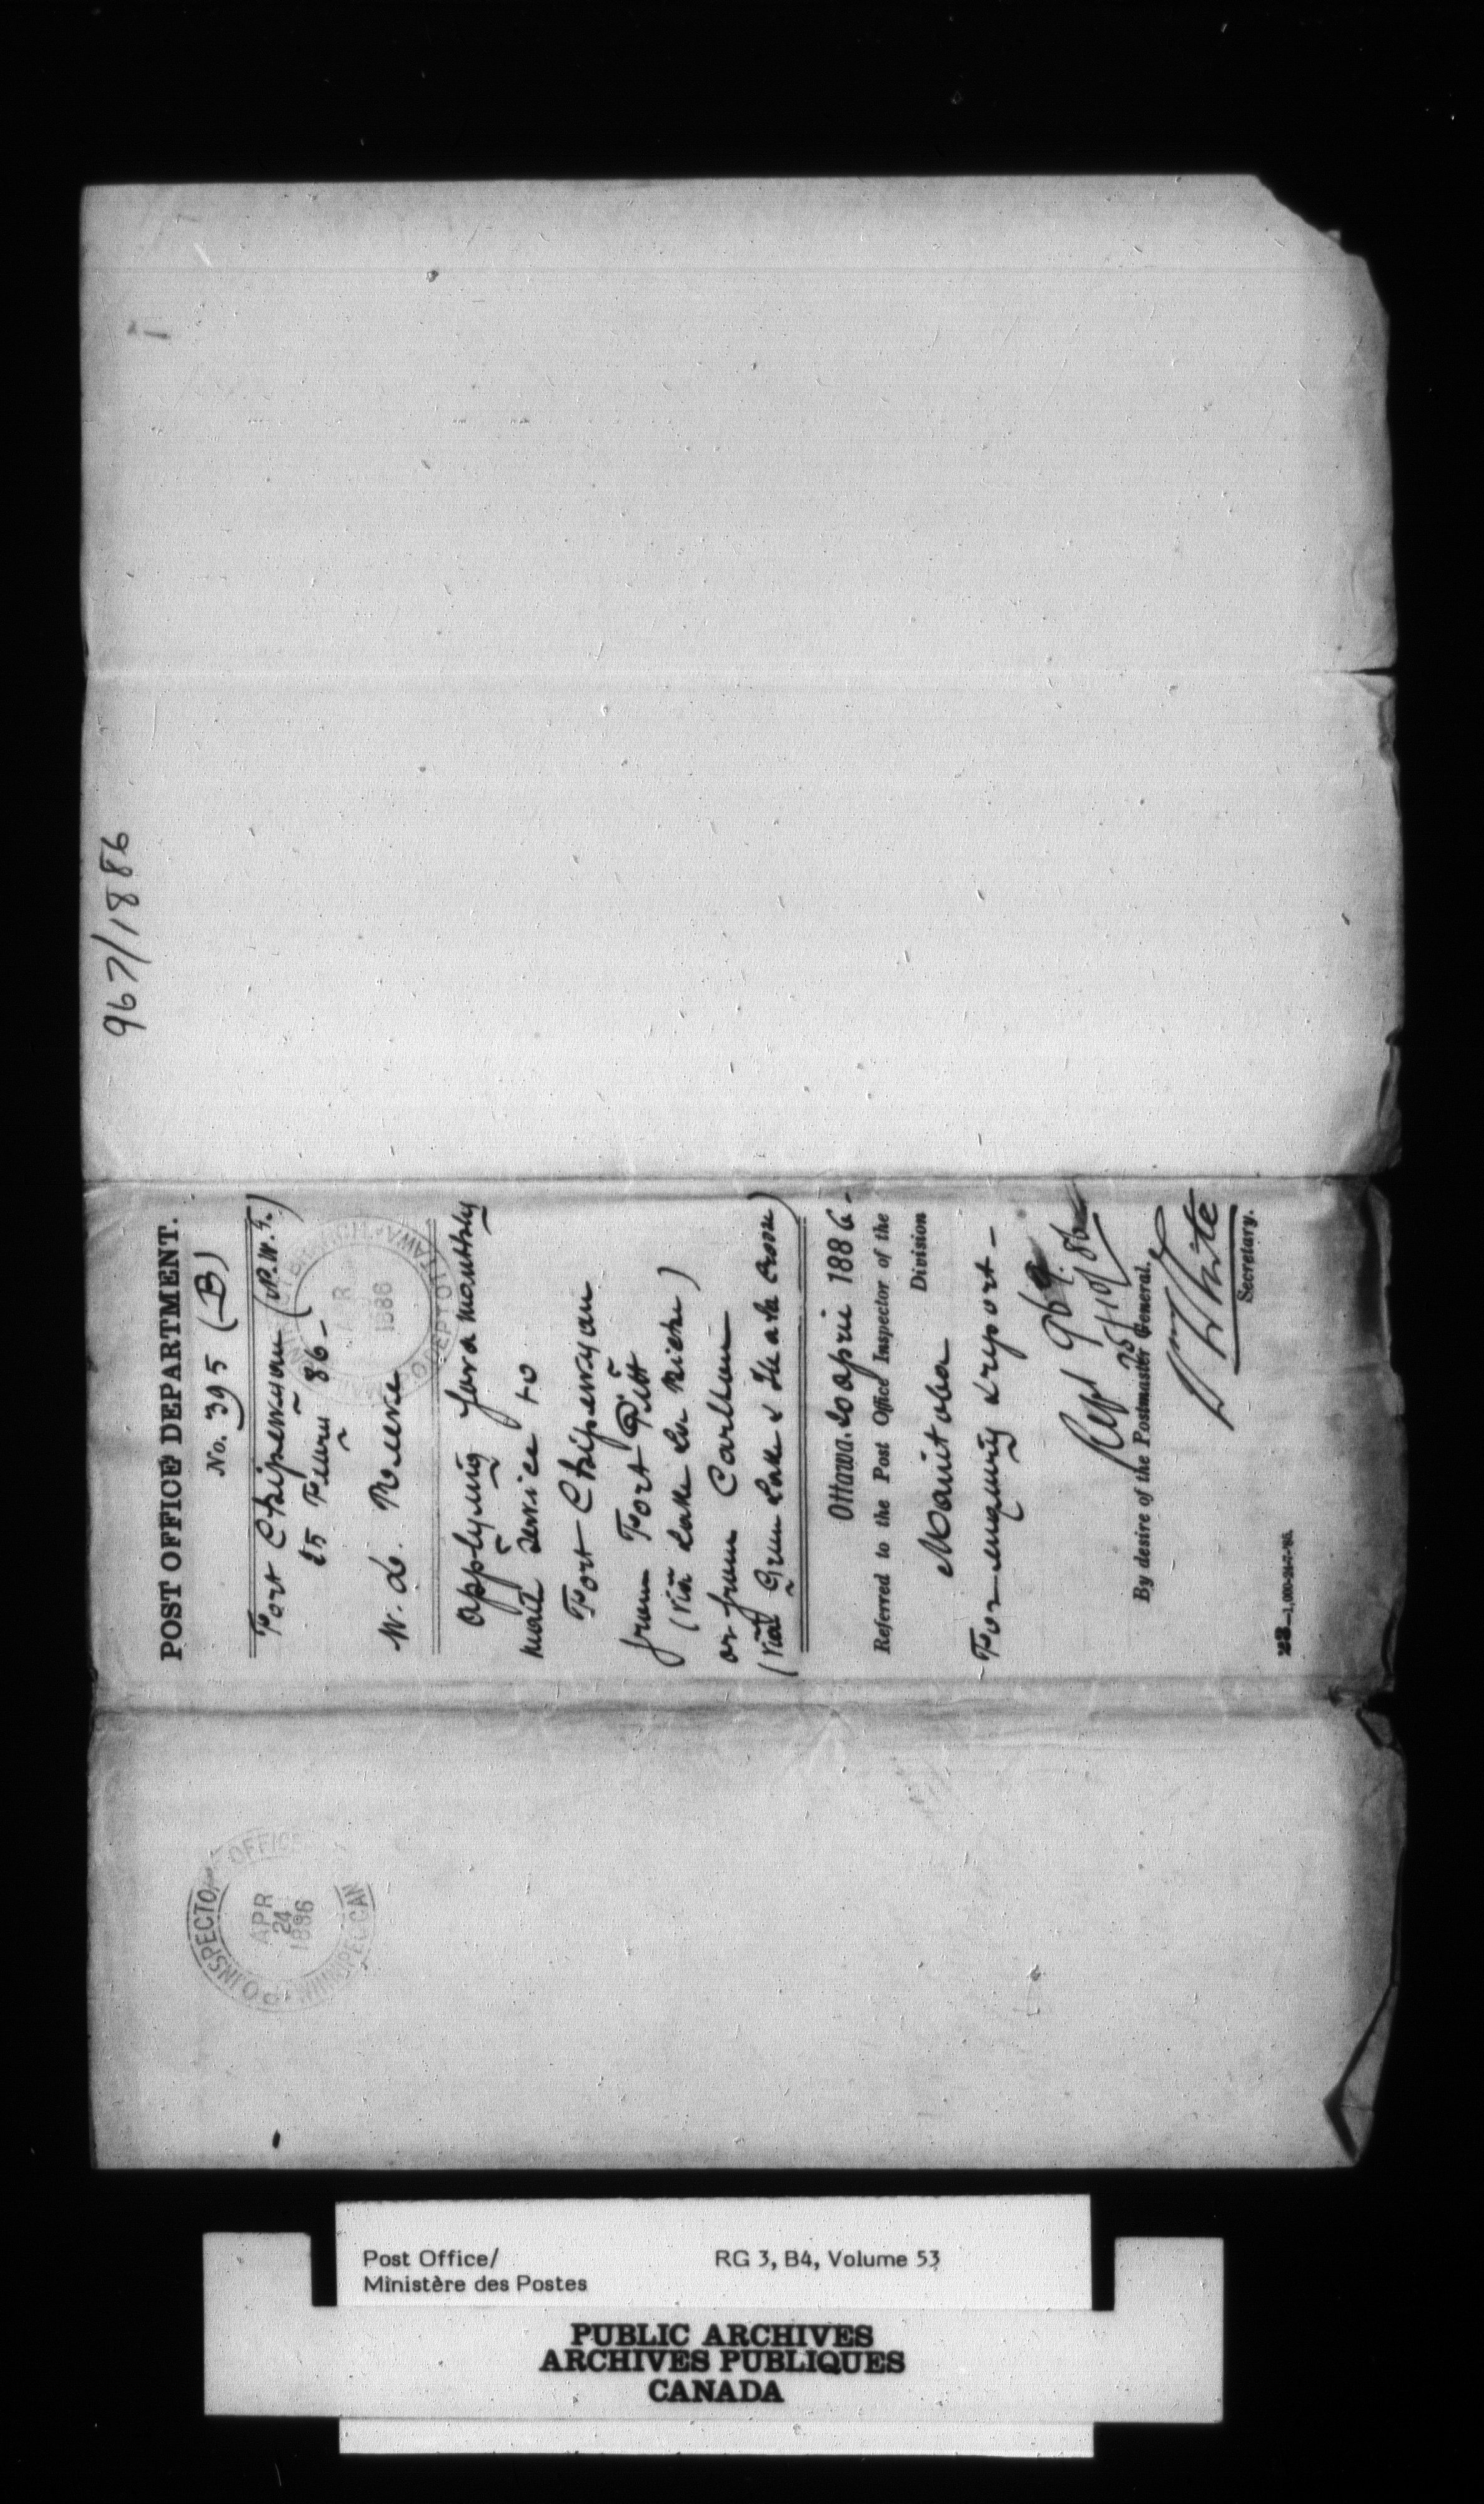 967/1886
POST OFFICE DEPARTMENT.
No. 395 (B)
Fort Chipewyan (N.W.T.)
25 Feury 86 -
W. D.
Applying for a monthly
mail service to
Fort Chipewyan
from Fort Pitt
(via Lake La Biche)
or from Carlton
(via Green Lake & Ile a la Crosse)
Ottawa. 20 April 1886 -
Referred to the Post Office Inspector of the
Manitoba Division
For enquiry & report -
Rept 967.
25/10/86
By desire of the Postmaster General.
Wm White
Secretary.
23-1,000-24-7-'85.
P.O. INSPECTOR OFFICE
APR
24
1886
WINNIPEG CAN
APR
1886
P.O. DEPT OTTAWA
Post Office/
Ministère des Postes
RG 3, B4, Volume 53
PUBLIC ARCHIVES
ARCHIVES PUBLIQUES
CANADA